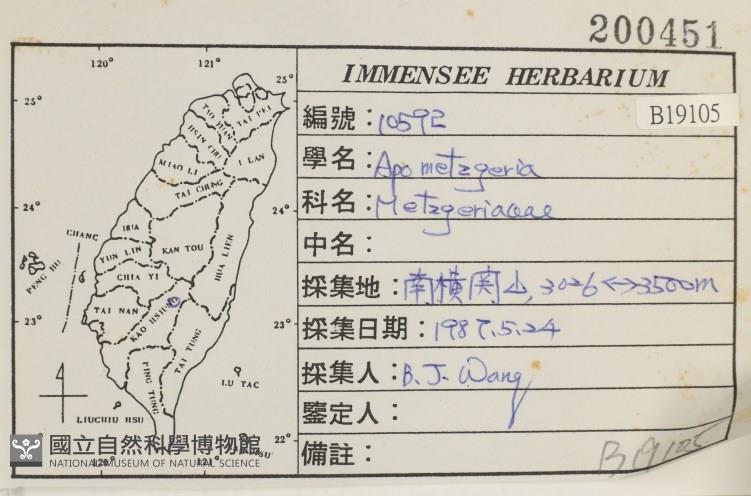 200451
IMMENSEE HERBARIUM
B19105
編號：10592
學名：Apometzgeria
科名：Metzgeriaceae
中名：
採集地：南橫関山, 3026<->3500m
採集日期：1987.5.24
採集人：B. J. Wang
鑒定人：
備註：
B19105
120° 121°
25°
25°
TAI PEI
TAO YUAN
HSIN CHU
I LAN
MIAO LI
TAI CHUNG
24°
24°
CHANG HUA
KAN TOU
HUA LIEN
YUN LIN
PENG HU
CHIA YI
TAI NAN
KAO HSIUNG
23°
23°
TAI TUNG
PING TUNG
LU TAO
LIUCHIU HSU
22°
120° 121°
國立自然科學博物館
NATIONAL MUSEUM OF NATURAL SCIENCE